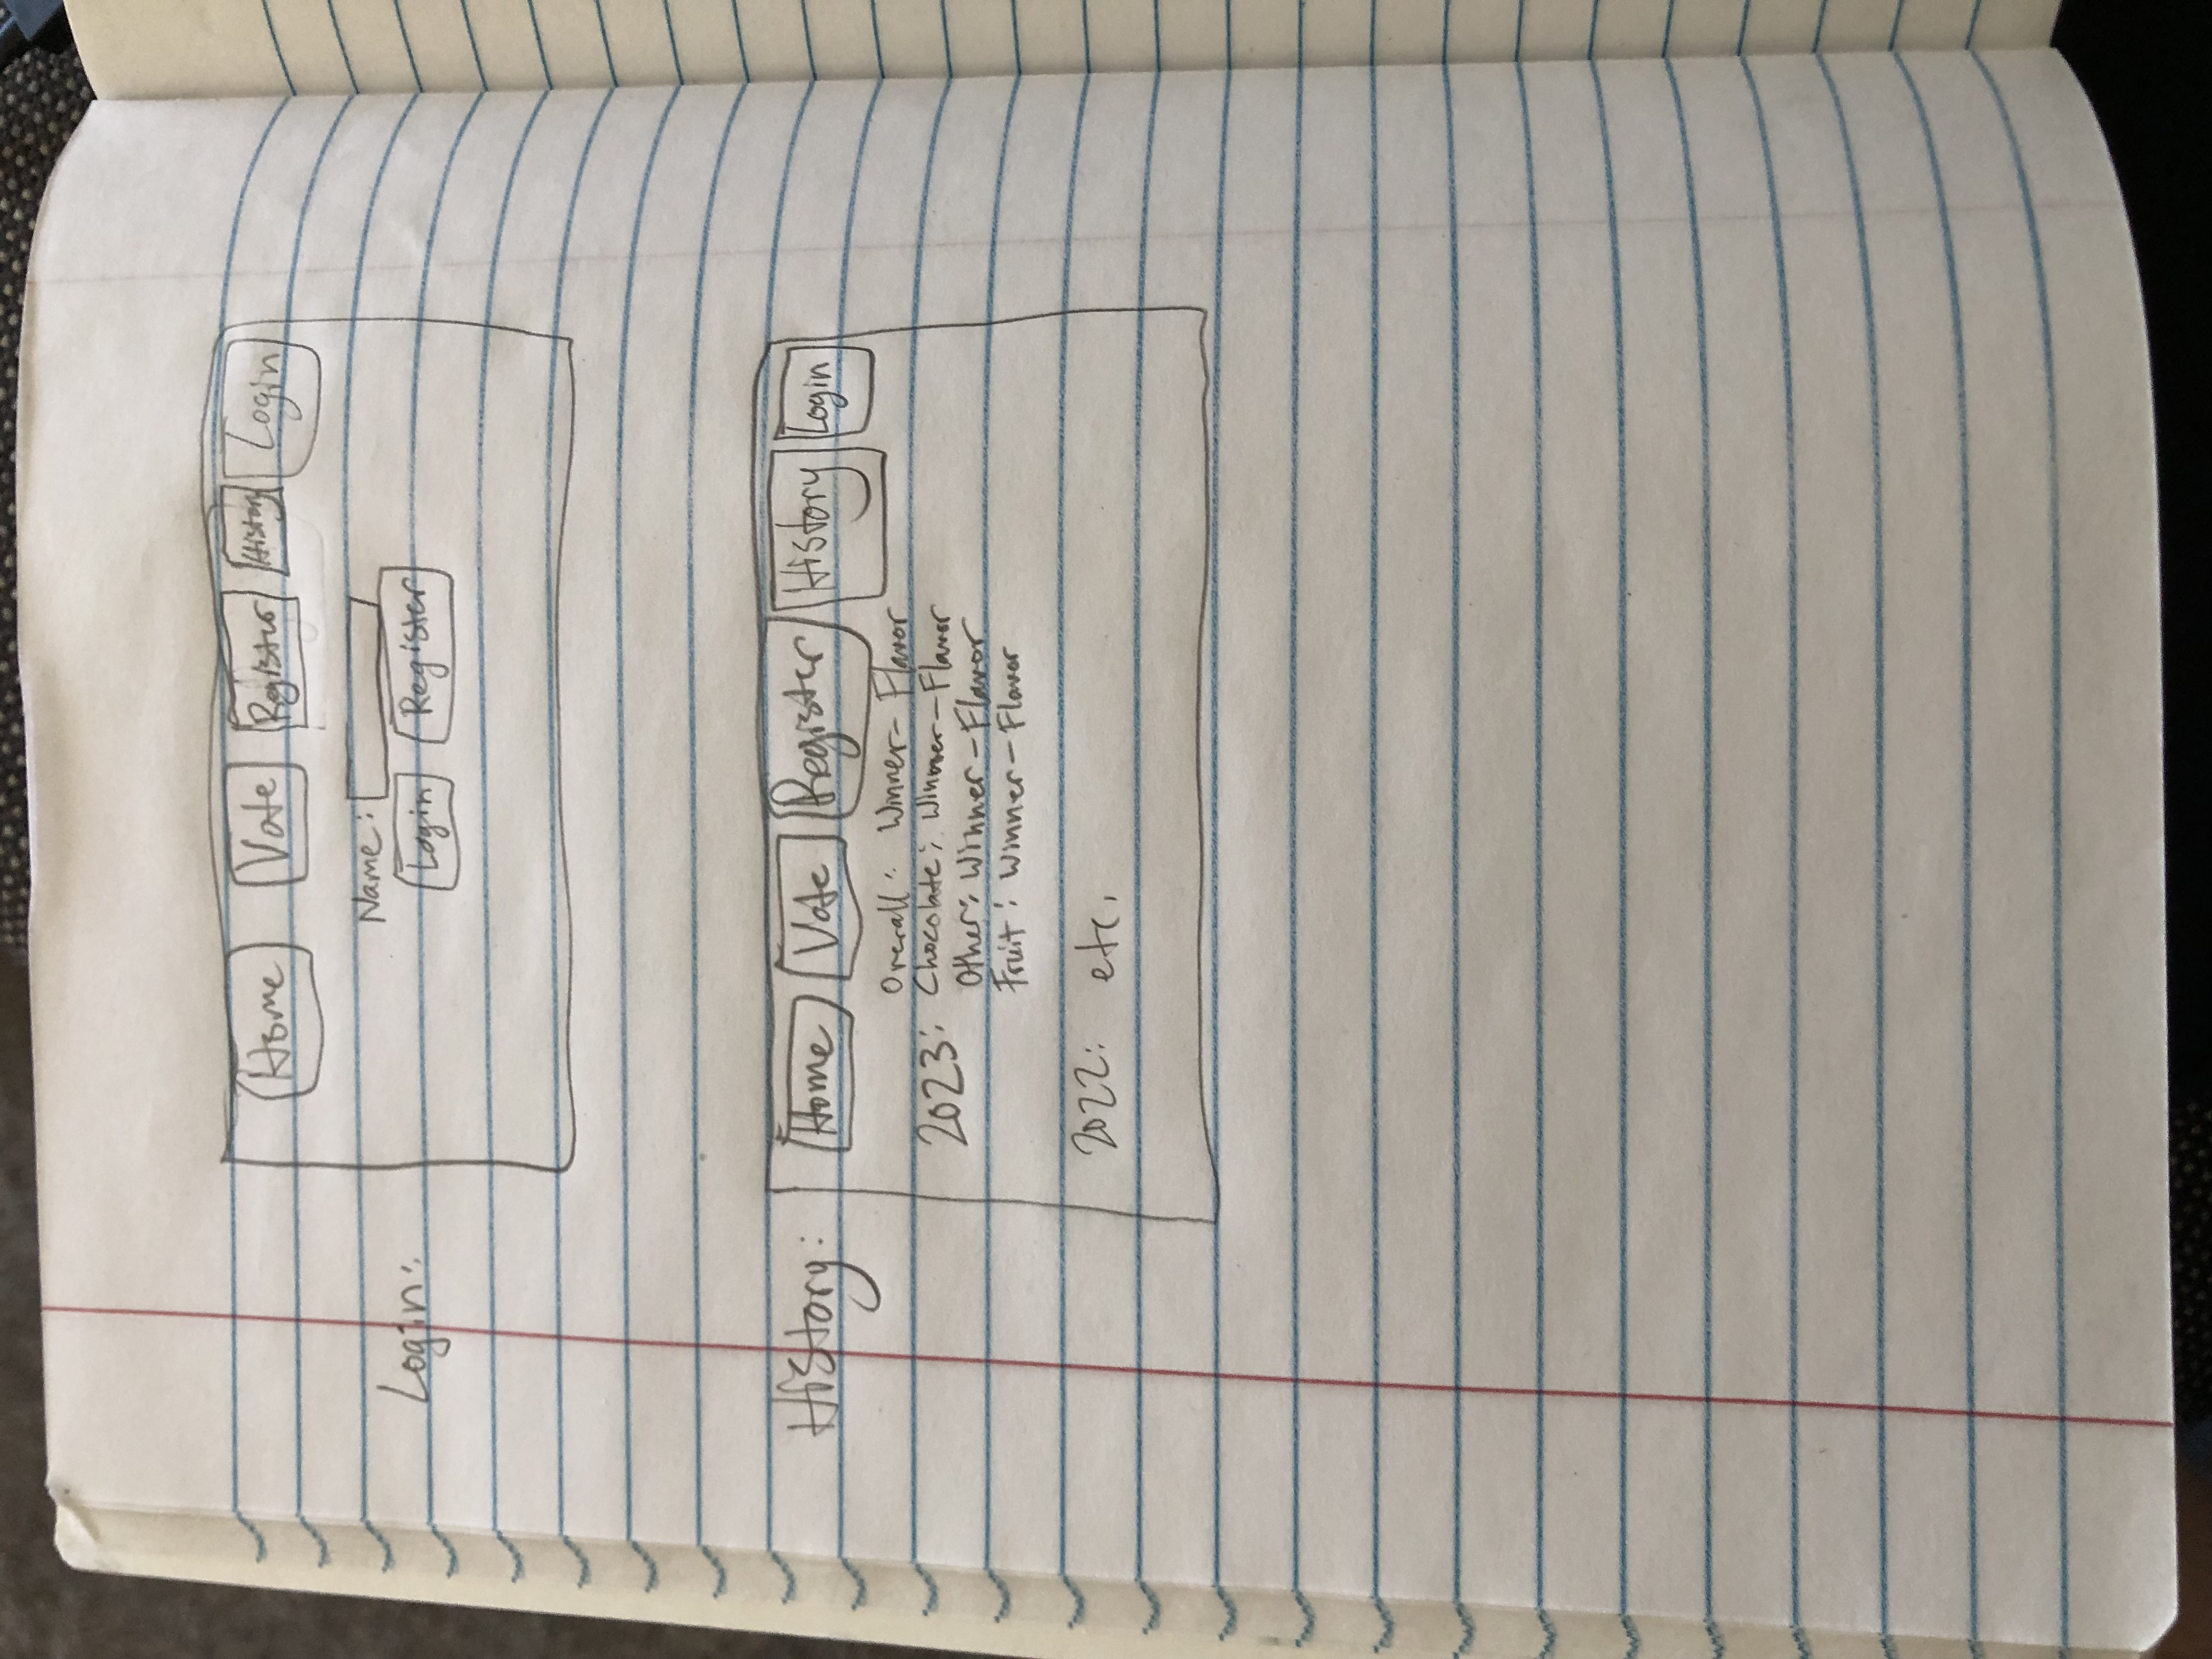 Home Vote Register History Login
Name:
Login:
Login Register
History:
Home Vote Register History Login
Overall: Winner - Flavor
2023: Chocolate: Winner - Flavor
Other: Winner - Flavor
Fruit: Winner - Flavor
2022: etc.